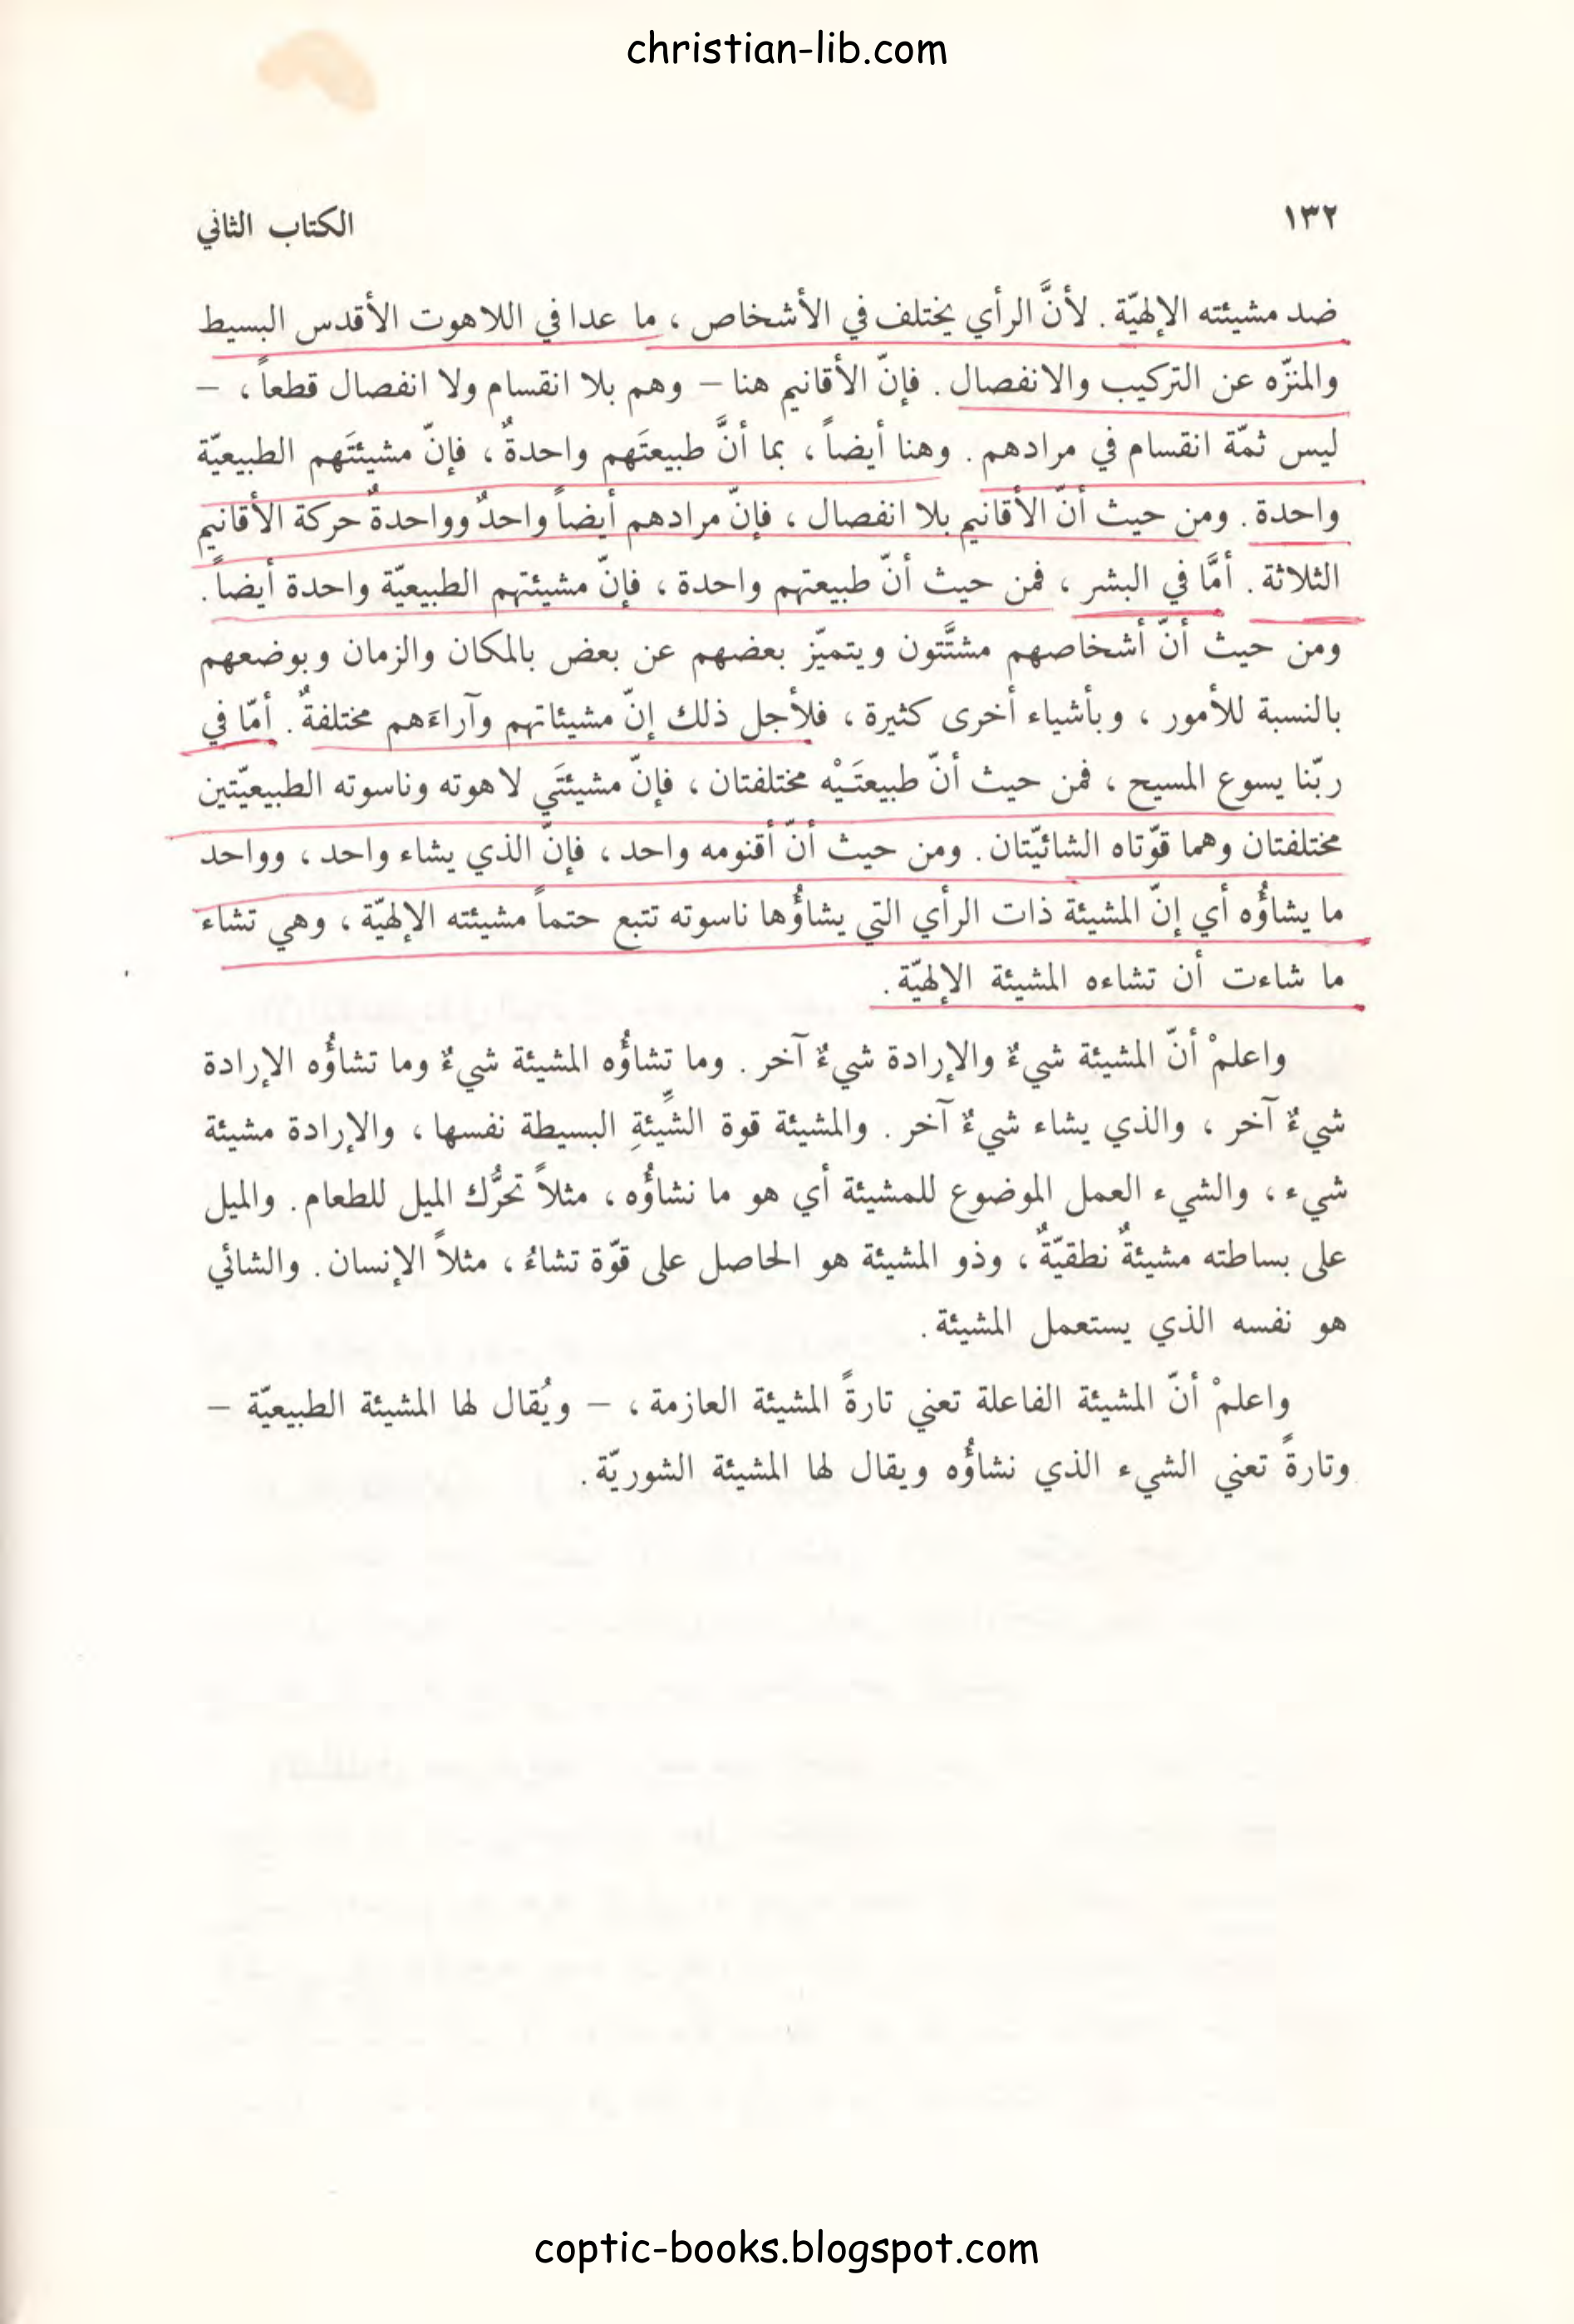 christian-lib.com
١٣٢
الكتاب الثاني
ضد مشيئته الإلهيّة. لأنَّ الرأي يختلف في الأشخاص، ما عدا في اللاهوت الأقدس البسيط
والمنزّه عن التركيب والانفصال. فإنّ الأقانيم هنا – وهم بلا انقسام ولا انفصال قطعاً، –
ليس ثمّة انقسام في مرادهم. وهنا أيضاً، بما أنَّ طبيعتَهم واحدةٌ، فإنّ مشيئتَهم الطبيعيّة
واحدة. ومن حيث أنّ الأقانيم بلا انفصال، فإنّ مرادهم أيضاً واحدٌ وواحدةٌ حركة الأقانيم
الثلاثة. أمَّا في البشر، فمن حيث أنّ طبيعتهم واحدة، فإنّ مشيئتهم الطبيعيّة واحدة أيضاً.
ومن حيث أنّ أشخاصهم مشتَّتون ويتميّز بعضهم عن بعض بالمكان والزمان وبوضعهم
بالنسبة للأمور، وبأشياء أخرى كثيرة، فلأجل ذلك إنّ مشيئاتهم وآراءَهم مختلفةٌ. أمّا في
ربّنا يسوع المسيح، فمن حيث أنّ طبيعتَيْه مختلفتان، فإنّ مشيئتَي لاهوته وناسوته الطبيعيّتين
مختلفتان وهما قوّتاه الشائيّتان. ومن حيث أنّ أقنومه واحد، فإنّ الذي يشاء واحد، وواحد
ما يشاؤُه أي إنّ المشيئة ذات الرأي التي يشاؤُها ناسوته تتبع حتماً مشيئته الإلهيّة، وهي تشاء
ما شاءت أن تشاءه المشيئة الإلهيّة.
واعلمْ أنّ المشيئة شيءٌ والإرادة شيءٌ آخر. وما تشاؤُه المشيئة شيءٌ وما تشاؤُه الإرادة
شيءٌ آخر، والذي يشاء شيءٌ آخر. والمشيئة قوة الشِّيئةِ البسيطة نفسها، والإرادة مشيئة
شيء، والشيء العمل الموضوع للمشيئة أي هو ما نشاؤُه، مثلاً تحرُّك الميل للطعام. والميل
على بساطته مشيئةٌ نطقيّةٌ، وذو المشيئة هو الحاصل على قوّة تشاءُ، مثلاً الإنسان. والشائي
هو نفسه الذي يستعمل المشيئة.
واعلمْ أنّ المشيئة الفاعلة تعني تارةً المشيئة العازمة، – ويُقال لها المشيئة الطبيعيّة –
وتارةً تعني الشيء الذي نشاؤُه ويقال لها المشيئة الشوريّة.
coptic-books.blogspot.com